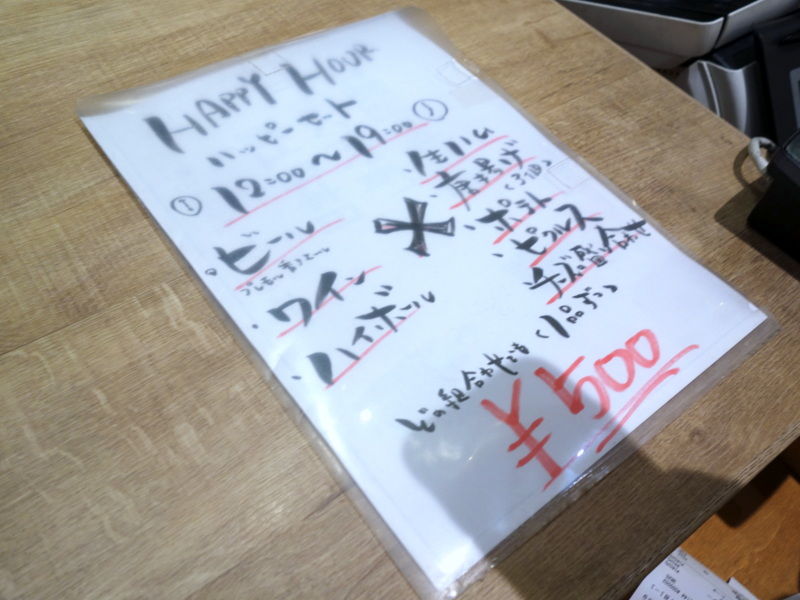 HAPPY HOUR
ハッピーセット
12:00～19:00
・ビール
・ワイン
・ハイボール
×
・生ハム
・唐揚げ
(3個)
・ポテト
・ピクルス
・チーズ盛り合わせ
どの組合わせでも(1品ずつ)
¥500